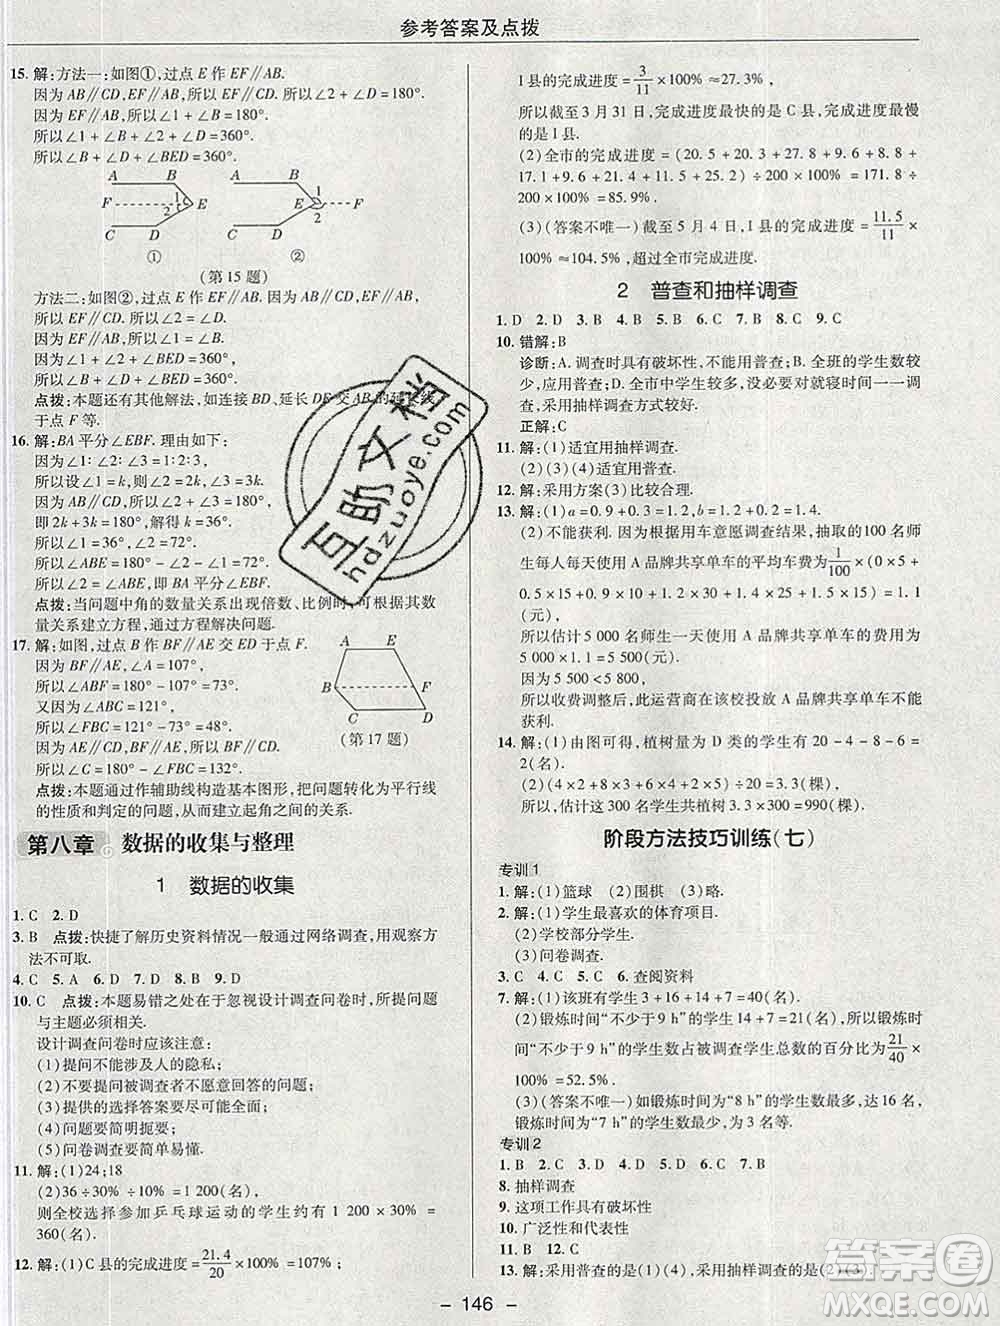 参考答案及点拨
15. 解:方法一:如图①,过点 E 作 EF∥AB.
因为 AB∥CD,EF∥AB,所以 EF∥CD,所以∠2+∠D=180°.
因为 EF∥AB,所以∠B+∠1=180°.
所以∠1+∠B+∠2+∠D=360°.
所以∠B+∠D+∠BED=360°.
A B A B
F 1 2 E E 1 2 F
C D C D
① ②
(第 15 题)
方法二:如图②,过点 E 作 EF∥AB. 因为 AB∥CD,EF∥AB,
所以 EF∥CD. 所以∠1=∠B,∠2=∠D.
因为∠1+∠2+∠BED=360°,
所以∠B+∠D+∠BED=360°.
点拨:本题还有其他解法,如连接 BD、延长 DE 交 AB 的延长线
于点 F 等.
16. 解:BA 平分∠EBF. 理由如下:
因为∠1∶∠2∶∠3=1∶2∶3,
所以设∠1=k,∠2=2k,∠3=3k.
因为 AB∥CD,所以∠2+∠3=180°,
即 2k+3k=180°,解得 k=36°.
所以∠1=36°,∠2=72°.
所以∠ABE=180°-∠2-∠1=72°.
所以∠2=∠ABE,即 BA 平分∠EBF.
点拨:当问题中角的数量关系出现倍数、比例时,可根据其数
量关系建立方程,通过方程解决问题.
17. 解:如图,过点 B 作 BF∥AE 交 ED 于点 F.
因为 BF∥AE,∠A=107°,
所以∠ABF=180°-107°=73°.
又因为∠ABC=121°,
所以∠FBC=121°-73°=48°.
所以∠C+∠FBC=180°,所以 BF∥CD.
因为 BF∥AE,所以 AE∥CD.
A E
B F
C D
(第 17 题)
点拨:本题通过作辅助线构造基本图形,把问题转化为平行线
的性质和判定的问题,从而建立起角之间的关系.
第八章 数据的收集与整理
1 数据的收集
1. C 2. D
3. B 点拨:快捷了解历史资料情况一般通过网络调查,用观察方
法不可取.
4. C 5. A 6. C 7. D 8. B 9. D
10. C 点拨:本题易错之处在于忽视设计调查问卷时,所提问题
与主题必须相关.
设计调查问卷时应该注意:
(1)提问不能涉及人的隐私;
(2)不要提问被调查者不愿意回答的问题;
(3)提供的选择答案要尽可能全面;
(4)问题要简明扼要;
(5)问卷调查要简单易懂.
11. 解:(1)24;18
(2)36÷30%÷10%=1 200(名),
则全校选择参加乒乓球运动的学生约有 1 200×30%=
360(名).
12. 解:(1)C 县的完成进度=21.4/20×100%=107%;
I 县的完成进度=3/11×100%≈27.3%,
所以截至 3 月 31 日,完成进度最快的是 C 县,完成进度最慢
的是 I 县.
(2)全市的完成进度=(20.5+20.3+27.8+9.6+8.8+
17.1+9.6+21.4+11.5+25.2)÷200×100%=171.8÷
200×100%=85.9%.
(3)(答案不唯一)截至 5 月 4 日,I 县的完成进度=11.5/11×
100%≈104.5%,超过全市完成进度.
2 普查和抽样调查
1. D 2. D 3. B 4. B 5. C 6. C 7. D 8. C 9. C
10. 错解:B
诊断:A. 调查时具有破坏性,不能用普查;B. 全班的学生数较
少,应用普查;D. 全市中学生较多,没必要对时间一一调
查,采用抽样调查方式较好.
正解:C
11. 解:(1)适宜用抽样调查.
(2)(3)(4)适宜用普查.
12. 解:采用方案(3)比较合理.
13. 解:(1)a=0.9+0.3=1.2,b=1.2+0.2=1.4.
(2)不能获利. 因为根据用车意愿调查结果,抽取的100 名师
生每人每天使用 A 品牌共享单车的平均车费为1/100×(0×5+
0.5×15+0.9×10+1.2×30+1.4×25+1.5×15)=1.1
(元),
所以估计 5 000 名师生一天使用 A 品牌共享单车的费用为
5 000×1.1=5 500(元).
因为 5 500<5 800,
所以收费调整后,此运营商在该校投放 A 品牌共享单车不能
获利.
14. 解:(1)由图可得,植树量为 D 类的学生有 20-4-8-6=
2(名).
(2)(4×2+8×3+6×4+2×5)÷20=3.3(棵),
所以,估计这 300 名学生共植树 3.3×300=990(棵).
阶段方法技巧训练(七)
专训 1
1. 解:(1)篮球 (2)围棋 (3)略.
2. 解:(1)学生最喜欢的体育项目.
(2)学校部分学生.
(3)问卷调查.
3. C 4. C 5. C 6. 查阅资料
7. 解:(1)该班有学生 3+16+14+7=40(名).
(2)锻炼时间“不少于 9 h”的学生 14+7=21(名),锻炼时
间“不少于 9 h”的学生数占被调查学生总数的百分比为21/40×
100%=52.5%.
(3)(答案不唯一)如锻炼时间为“8 h”的学生数最多,达 16
名,锻炼时间为“7 h”的学生数最少,为 3 名.
专训 2
1. B 2. C 3. C 4. D 5. D 6. C 7. B
8. 抽样调查
9. 这项工作具有破坏性
10. 广泛性和代表性
11. B 12. C
13. 解:采用普查的是(1)(4),采用抽样调查的是(2)(3).
- 146 -
互助文档
hdzuoye.com
答案圈
MXQE.COM